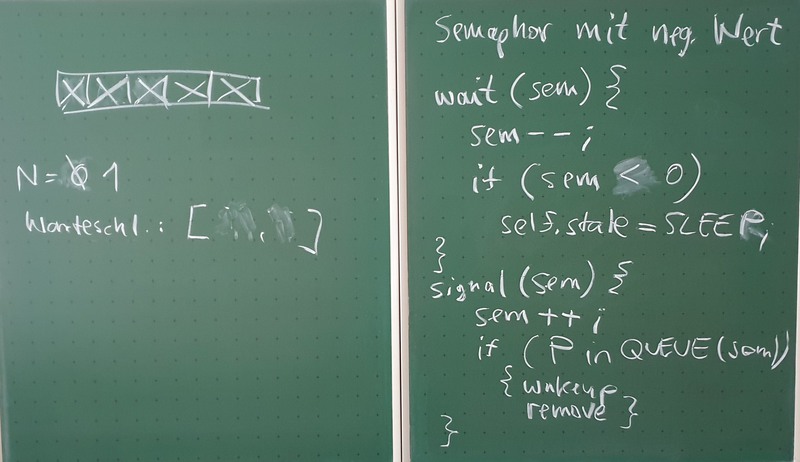 X X X X X
N = 0 1
Warteschl.: [ , ]
Semaphor mit neg. Wert
wait (sem) {
sem--;
if (sem < 0)
self.state = SLEEP;
}
signal (sem) {
sem++;
if (P in QUEUE (sem))
{ wakeup
remove }
}